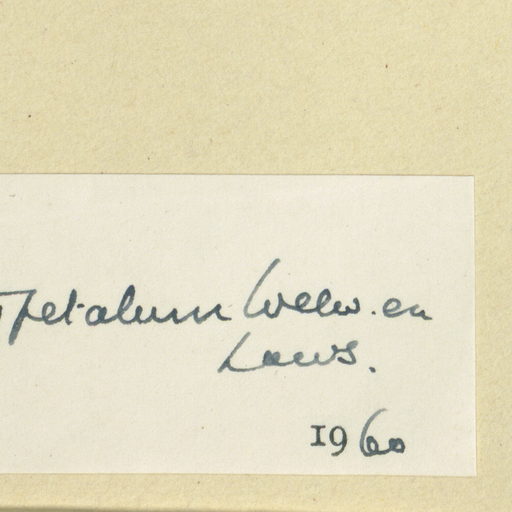 petalum Welw. ex
Laws.
1960